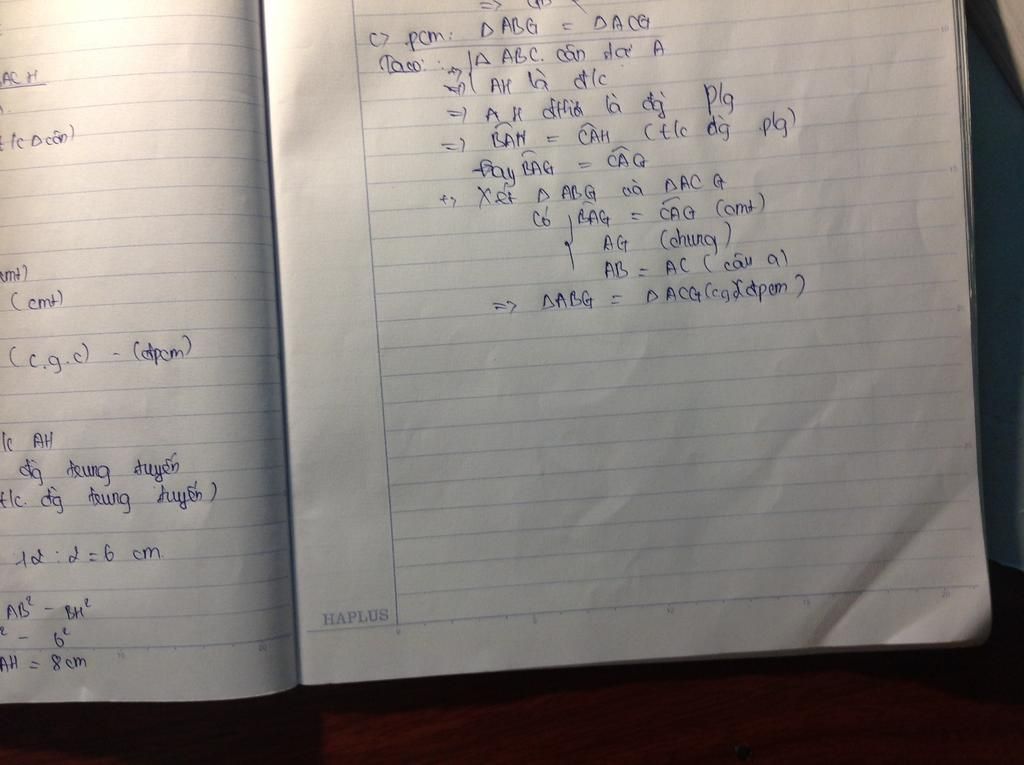 ACH
t/c Δ cân)
cmt)
(cmt)
(c.g.c) - (đpcm)
t/c AH
đg trung tuyến
t/c. đg trung tuyến)
12 : 2 = 6 cm
AB² - BH²
² - 6²
AH = 8cm
=> GB
c> pcm: Δ ABG = Δ ACG
Ta có: => Δ ABC. cân tại A
=> AH là đ/c
=> AH là đg p/g
=> BAH = CAH (t/c đg p/g)
hay BAG = CAG
+> Xét Δ ABG và Δ ACG
Có BAG = CAG (cmt)
AG (chung)
AB = AC (câu a)
=> ΔABG = ΔACG (đpcm)
HAPLUS
0 5 10 15 20